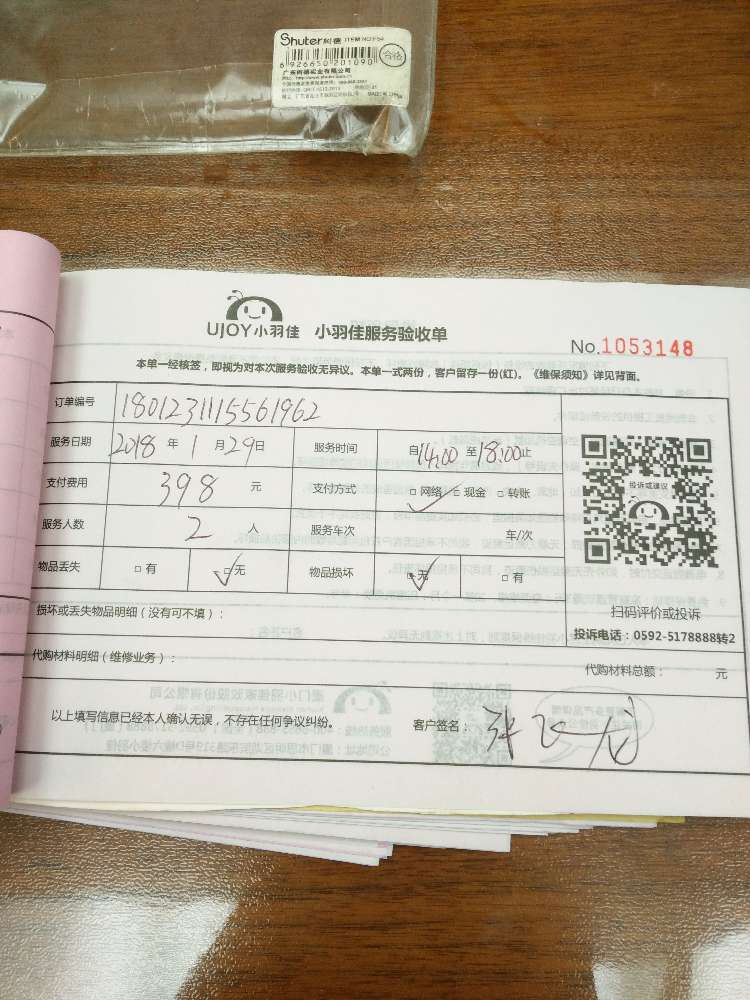 Shuter树德 ITEM NO:F54
6926650201090
合格
广东树德实业有限公司
UJOY小羽佳 小羽佳服务验收单
No.1053148
本单一经核签，即视为对本次服务验收无异议。本单一式两份，客户留存一份(红)。《维保须知》详见背面。
订单编号 1801231115561962
服务日期 2018 年 1 月 29 日 服务时间 自 14:00 至 18:00 止
支付费用 398 元 支付方式 □ 网络 ✓ □ 现金 □ 转账
服务人数 2 人 服务车次 车/次
物品丢失 □ 有 ✓ □ 无 物品损坏 ✓ □ 无 □ 有
投诉或建议
扫码评价或投诉
投诉电话：0592-5178888转2
损坏或丢失物品明细（没有可不填）：
代购材料明细（维修业务）： 代购材料总额： 元
以上填写信息已经本人确认无误，不存在任何争议纠纷。 客户签名： 张飞龙